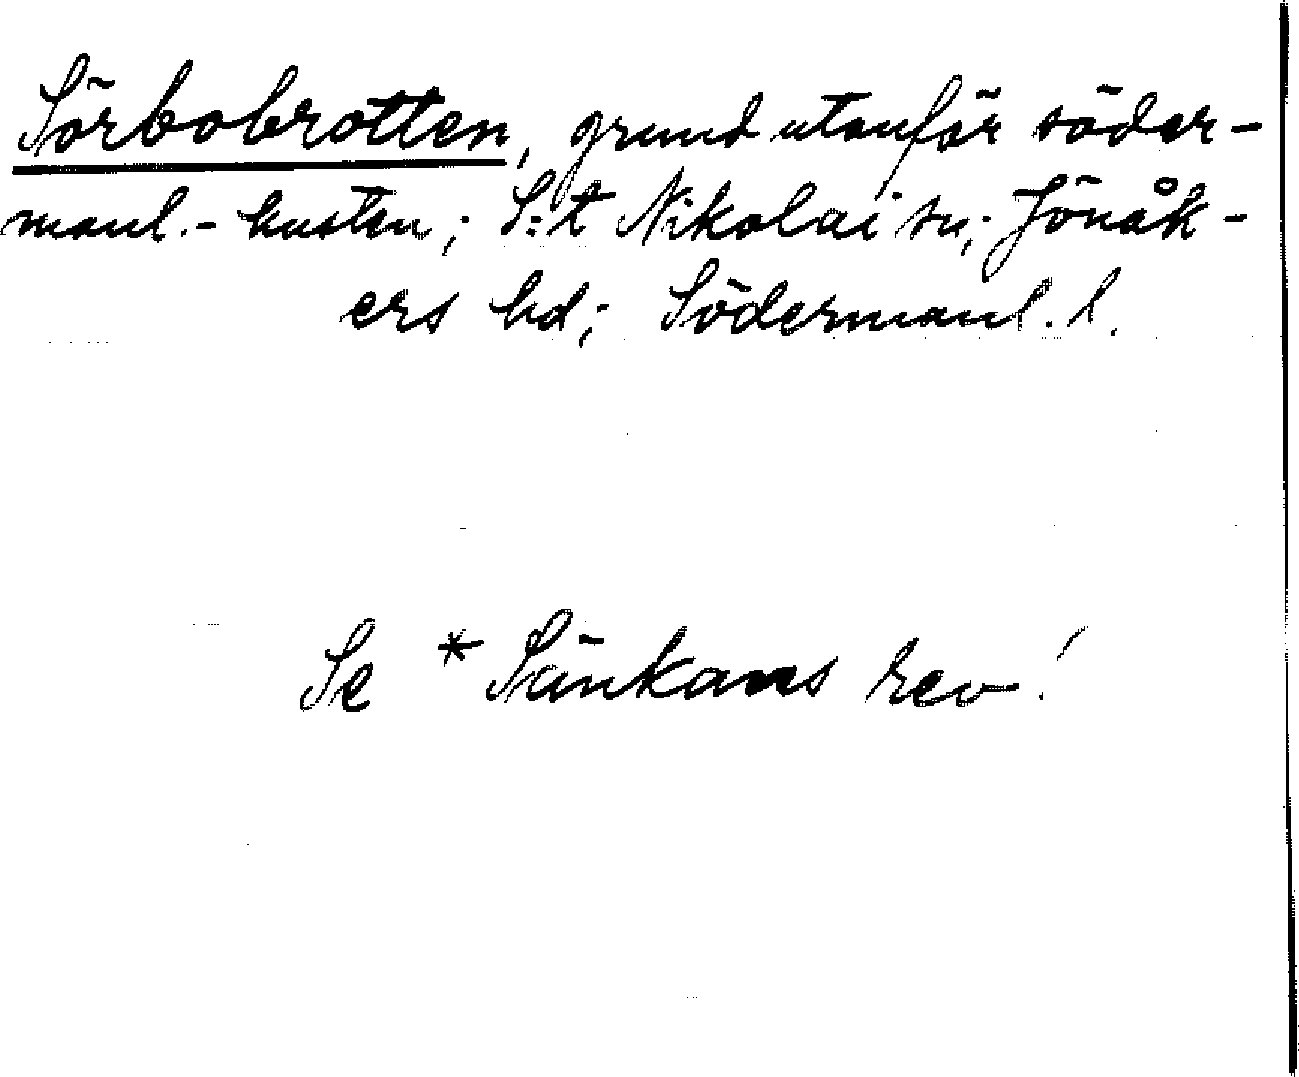 Sörbobrotten, grund utanför söder-
manl.-kusten; S:t Nikolai sn; Jönåk-
ers hd; Södermanl. l.
Se * Sänkans rev!